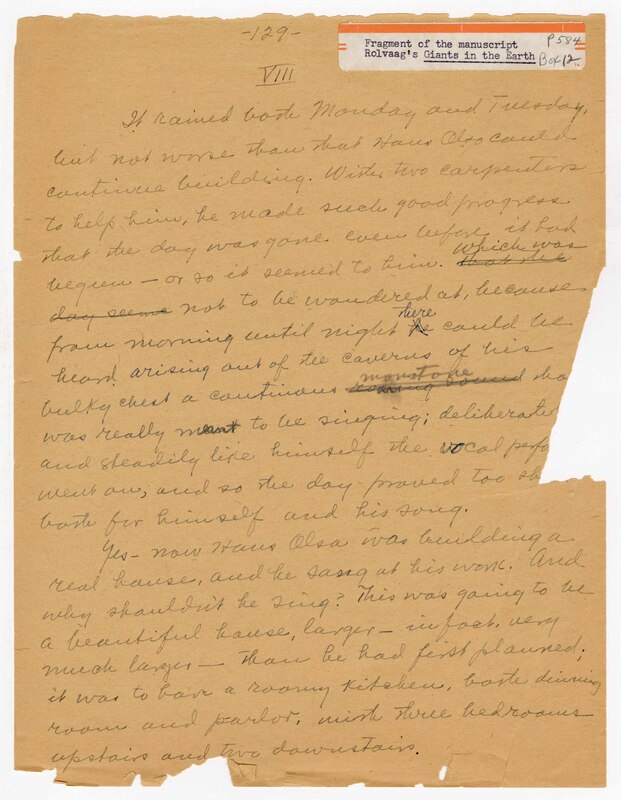 -129-
Fragment of the manuscript P584
Rolvaag's Giants in the Earth Box 12
VIII
It rained both Monday and Tuesday,
but not worse than that Hans Olsa could
continue building. With two carpenters
to help him, he made such good progress
that the day was gone even before it had
begun — or so it seemed to him. which was
that the
day seeme not to be wondered at, because
from morning until night there could be
heard arising out of the caverns of his
bulky chest a continous monotone
roaring sound tha
was really meant to be singing; deliberate
and steadily like himself the vocal perfo
went on; and so the day proved too sh
both for himself and his song.
Yes – now Hans Olsa was building a
real house, and he sang at his work. And
why shouldn't he sing? This was going to be
a beautiful house, larger – in fact, very
much larger – than he had first planned;
it was to have a roomy kitchen, both dinning
room and parlor, with three bedrooms
upstairs and two downstairs.